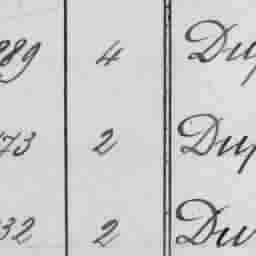 889 4 Dup
173 2 Dup
232 2 Du